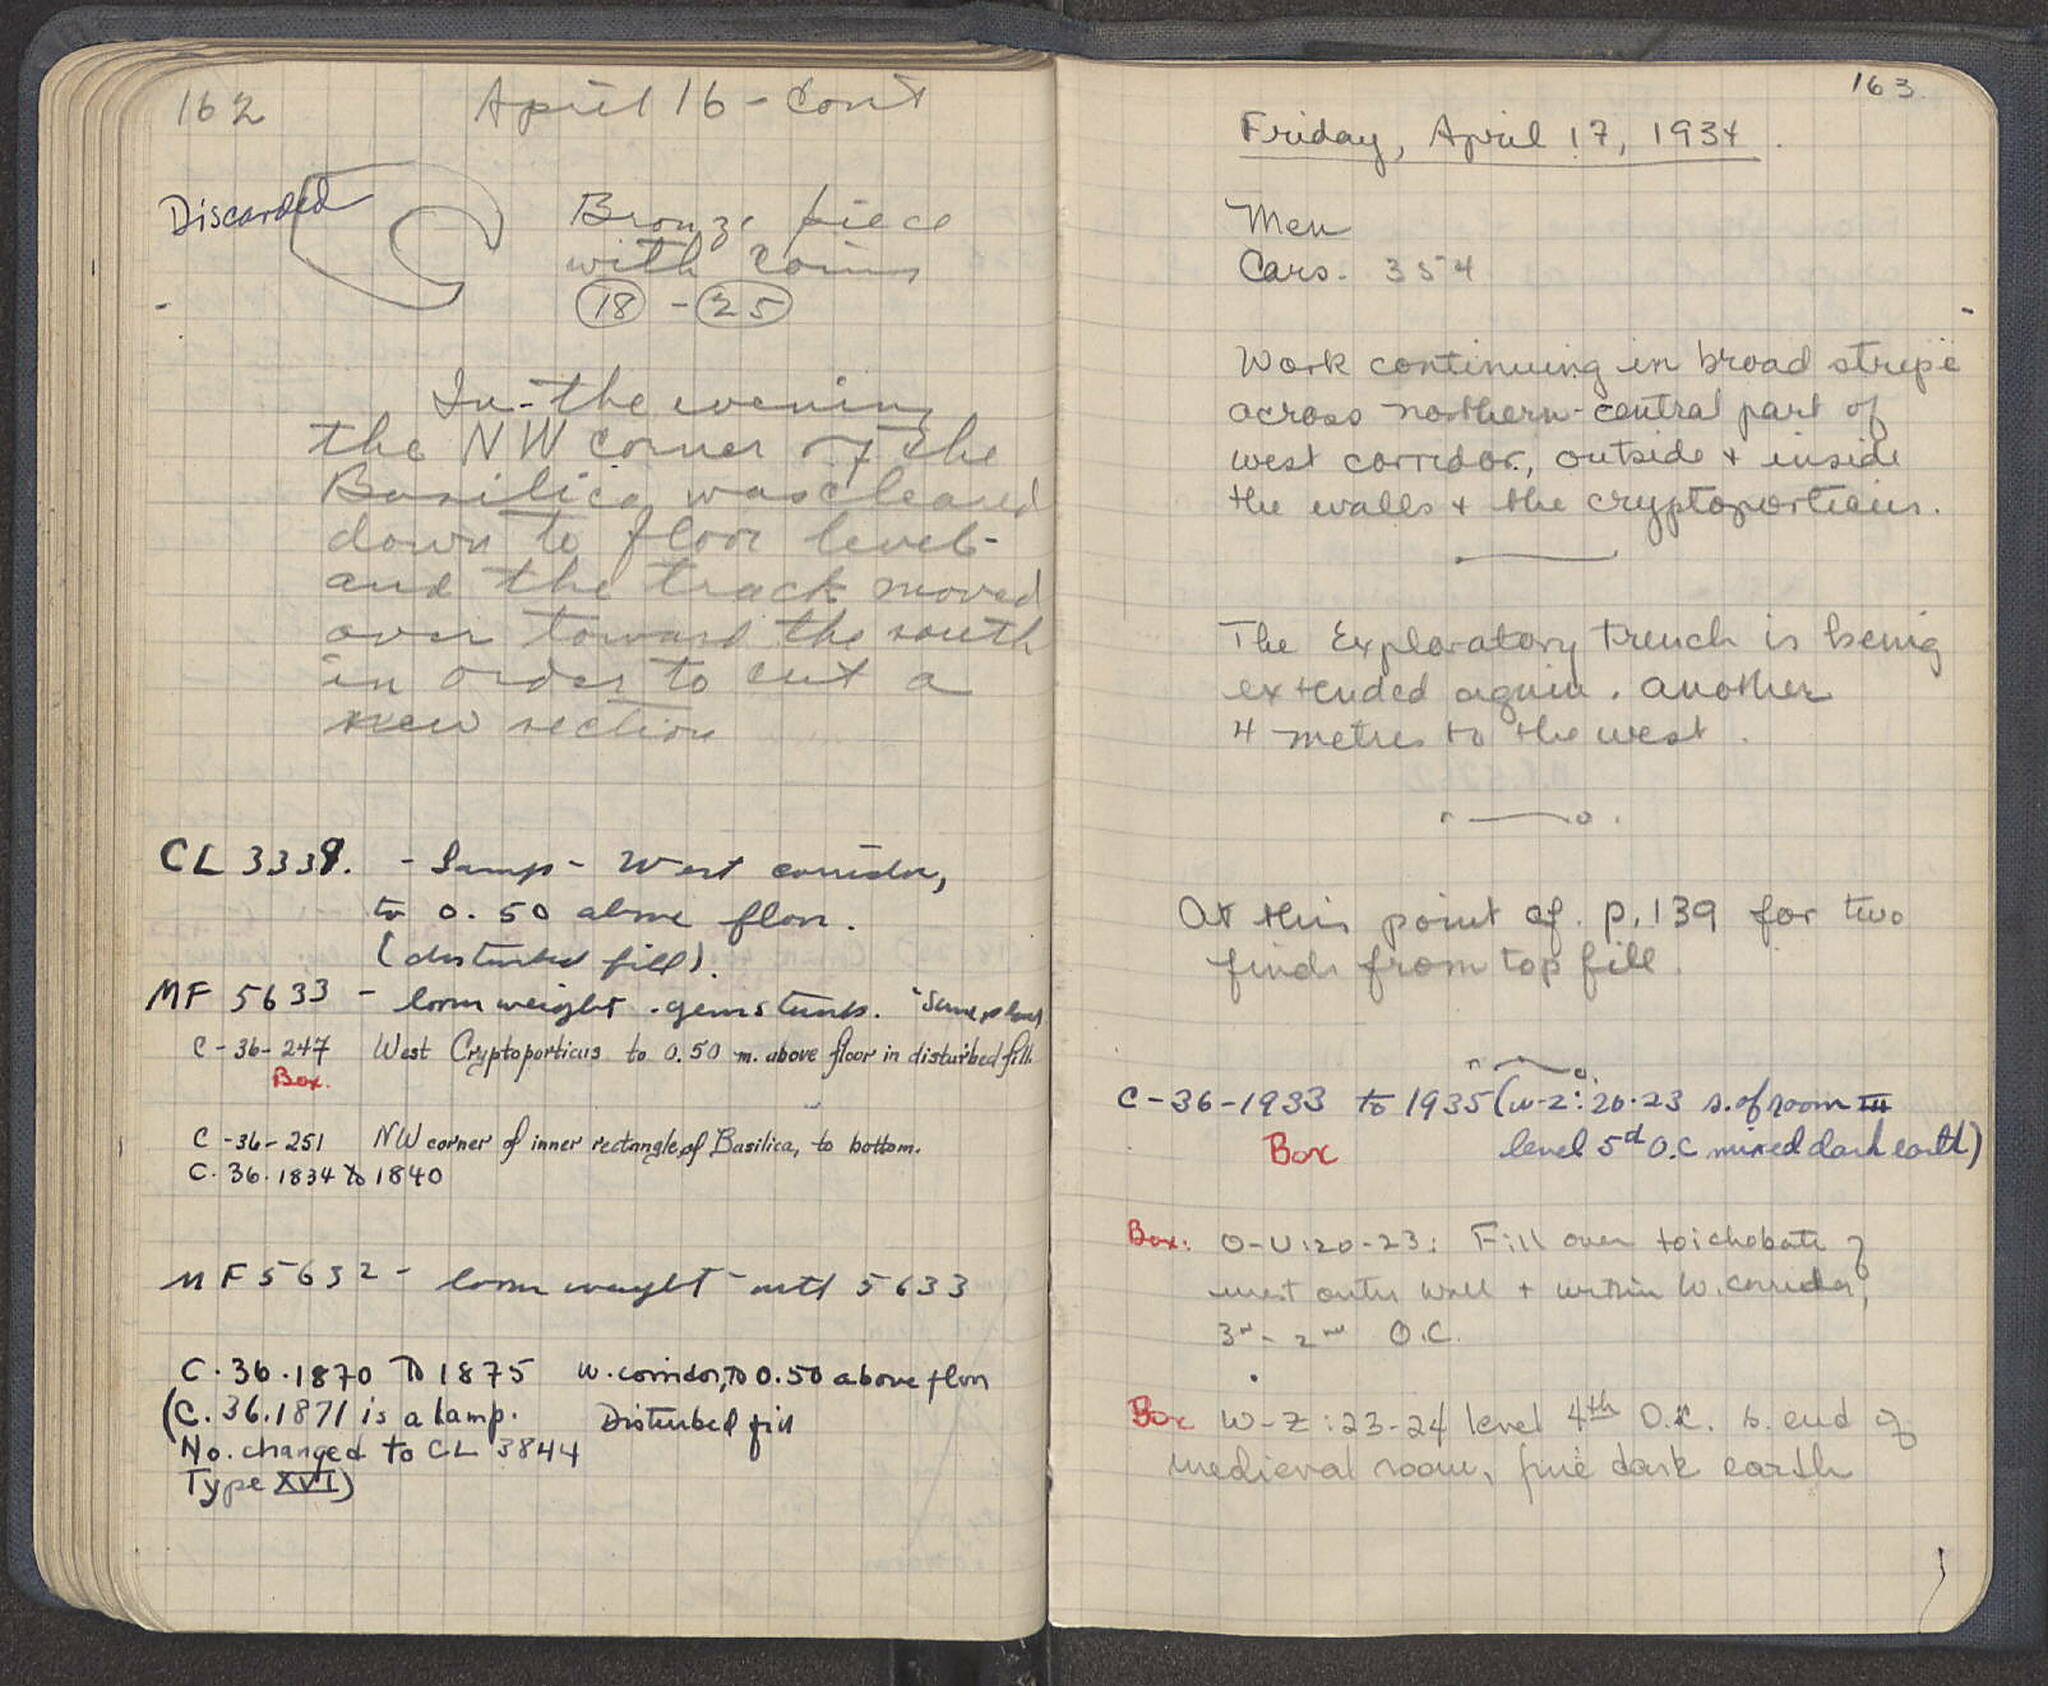 162
April 16 - Cont
Discarded
Bronze piece
with coins
18 - 25
In the evening
the NW corner of the
Basilica was cleared
down to floor level
and the track moved
over toward the south
in order to cut a
new section
CL 3339. - Lamp - West corridor,
to 0.50 above floor.
(disturbed fill).
MF 5633 - loom weight. gem stamp. "Same place
C-36-247 West Cryptoporticus to 0.50 m. above floor in disturbed fill.
Box.
C-36-251 NW corner of inner rectangle of Basilica, to bottom.
C. 36. 1834 to 1840
MF 5632 - loom weight - with 5633
C. 36. 1870 to 1875 W. corridor, to 0.50 above floor
(C. 36. 1871 is a lamp. Disturbed fill
No. changed to CL 3844
Type XVI)
163
Friday, April 17, 1934.
Men
Cars. 354
Work continuing in broad stripe
across northern-central part of
west corridor, outside + inside
the walls + the cryptoporticus.
The Exploratory trench is being
extended again. another
4 metres to the west.
At this point cf. p. 139 for two
finds from top fill.
C-36-1933 to 1935 (W-Z: 20-23 s. of room III
Box level 5d O.C mixed dark earth)
Box: O-U: 20-23: Fill over toichobate of
west outer wall + within W. corridor,
3rd - 2nd O.C.
Box W-Z: 23-24 level 4th O.C. s. end of
medieval room, fine dark earth